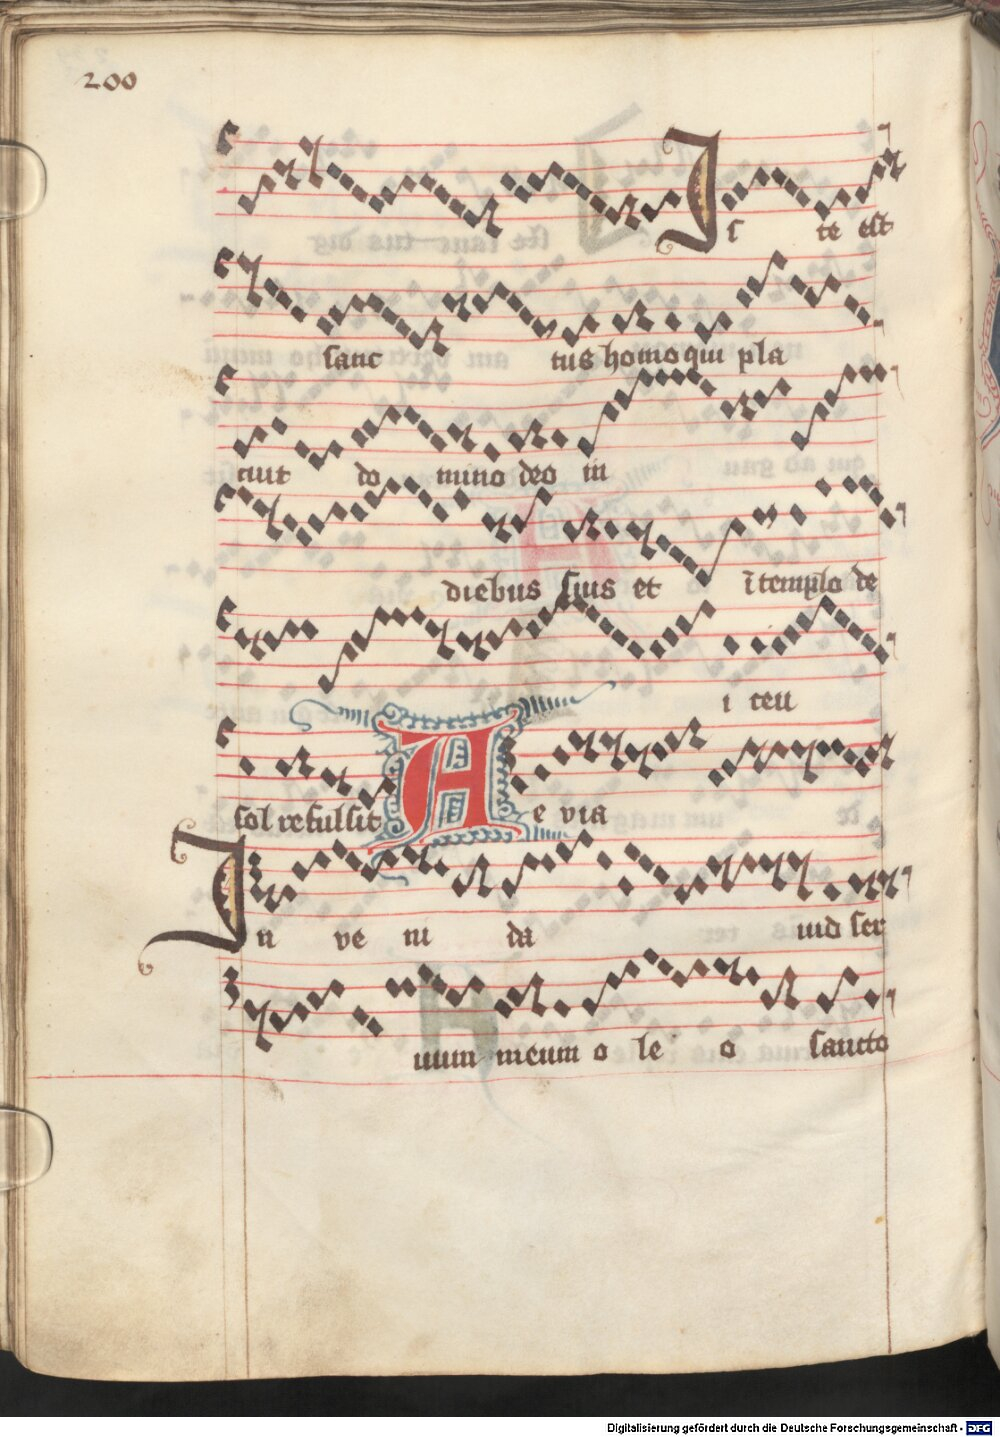 200
Is te est
sanc tus homo qui pla
cuit do mino deo in
diebus suis et ī templo de
i ceu
sol refulsit A e via
In ve ni da uid ser
uum meum o le o sancto
Digitalisierung gefördert durch die Deutsche Forschungsgemeinschaft - DFG